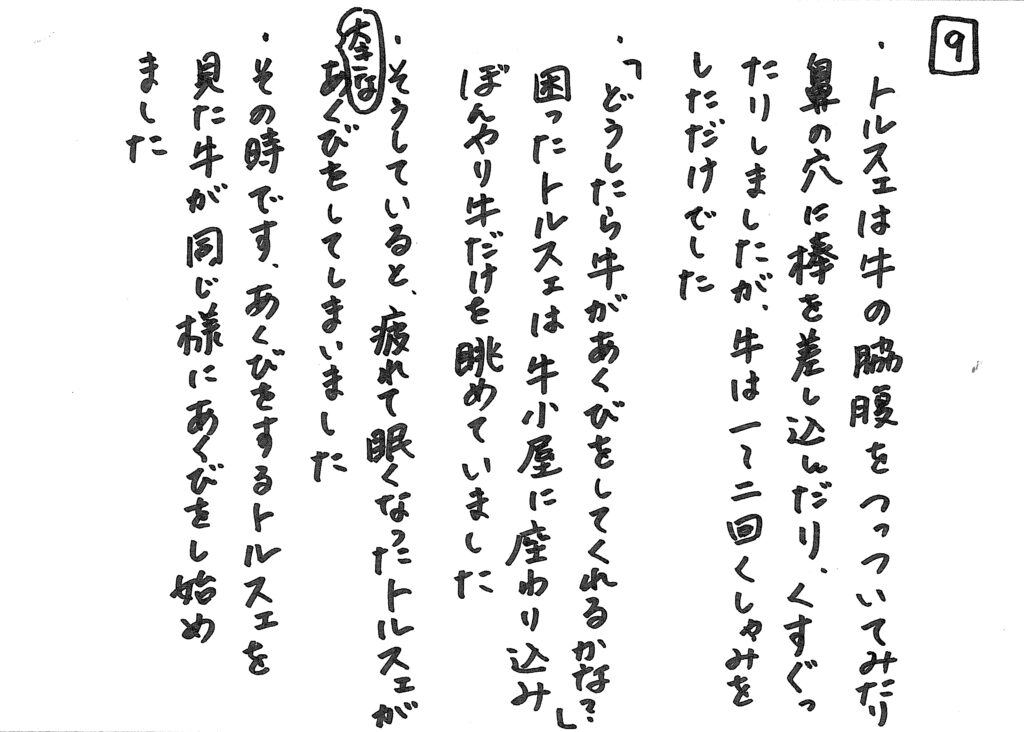 9
・トルスェは牛の脇腹をつっついてみたり
鼻の穴に棒を差し込んだり、くすぐっ
たりしましたが、牛は一〜二回くしゃみを
しただけでした
・「どうしたら牛があくびをしてくれるかな?」
困ったトルスェは牛小屋に座わり込み
ぼんやり牛だけを眺めていました
・そうしていると、疲れて眠くなったトルスェが
大きな
あくびをしてしまいました
・その時です、あくびをするトルスェを
見た牛が同じ様にあくびをし始め
ました